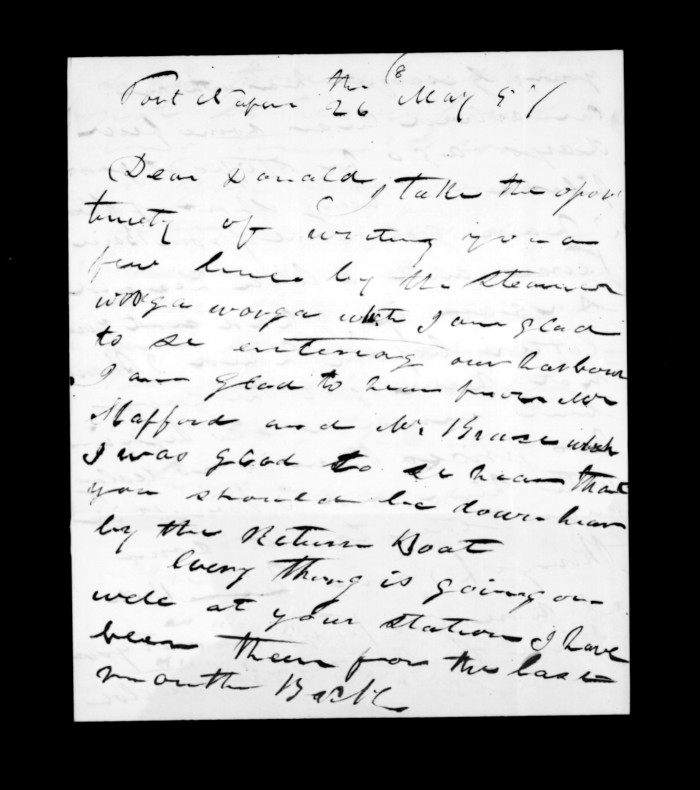 Port Napier the 26 May 57
Dear Donald I take the opor
tunety of writing you a
few lines by the steamer
wonga wonga wich I am glad
to se entering our harbour
I am glad to hear from Mr
Stafford and Mr which
I was glad to se hear that
you should be down hear
by the Return Boat
Every thing is going on
well at your station I have
been them for the last
month Back